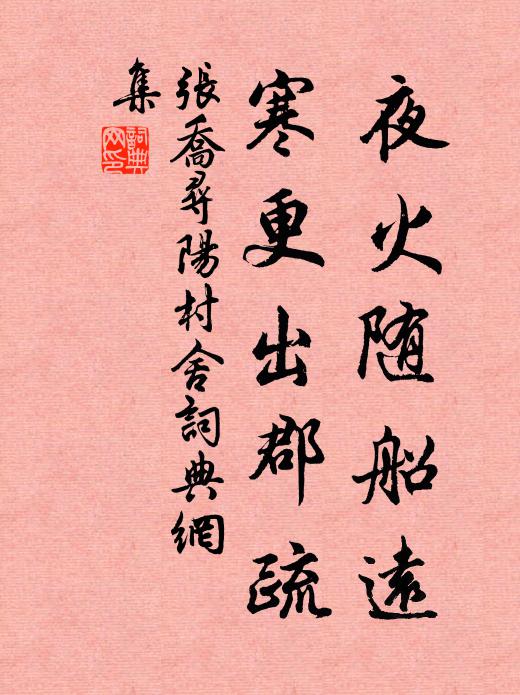 夜火随船遠
寒更出郡疏
張喬尋陽村舍詞典網
集
詞典网印